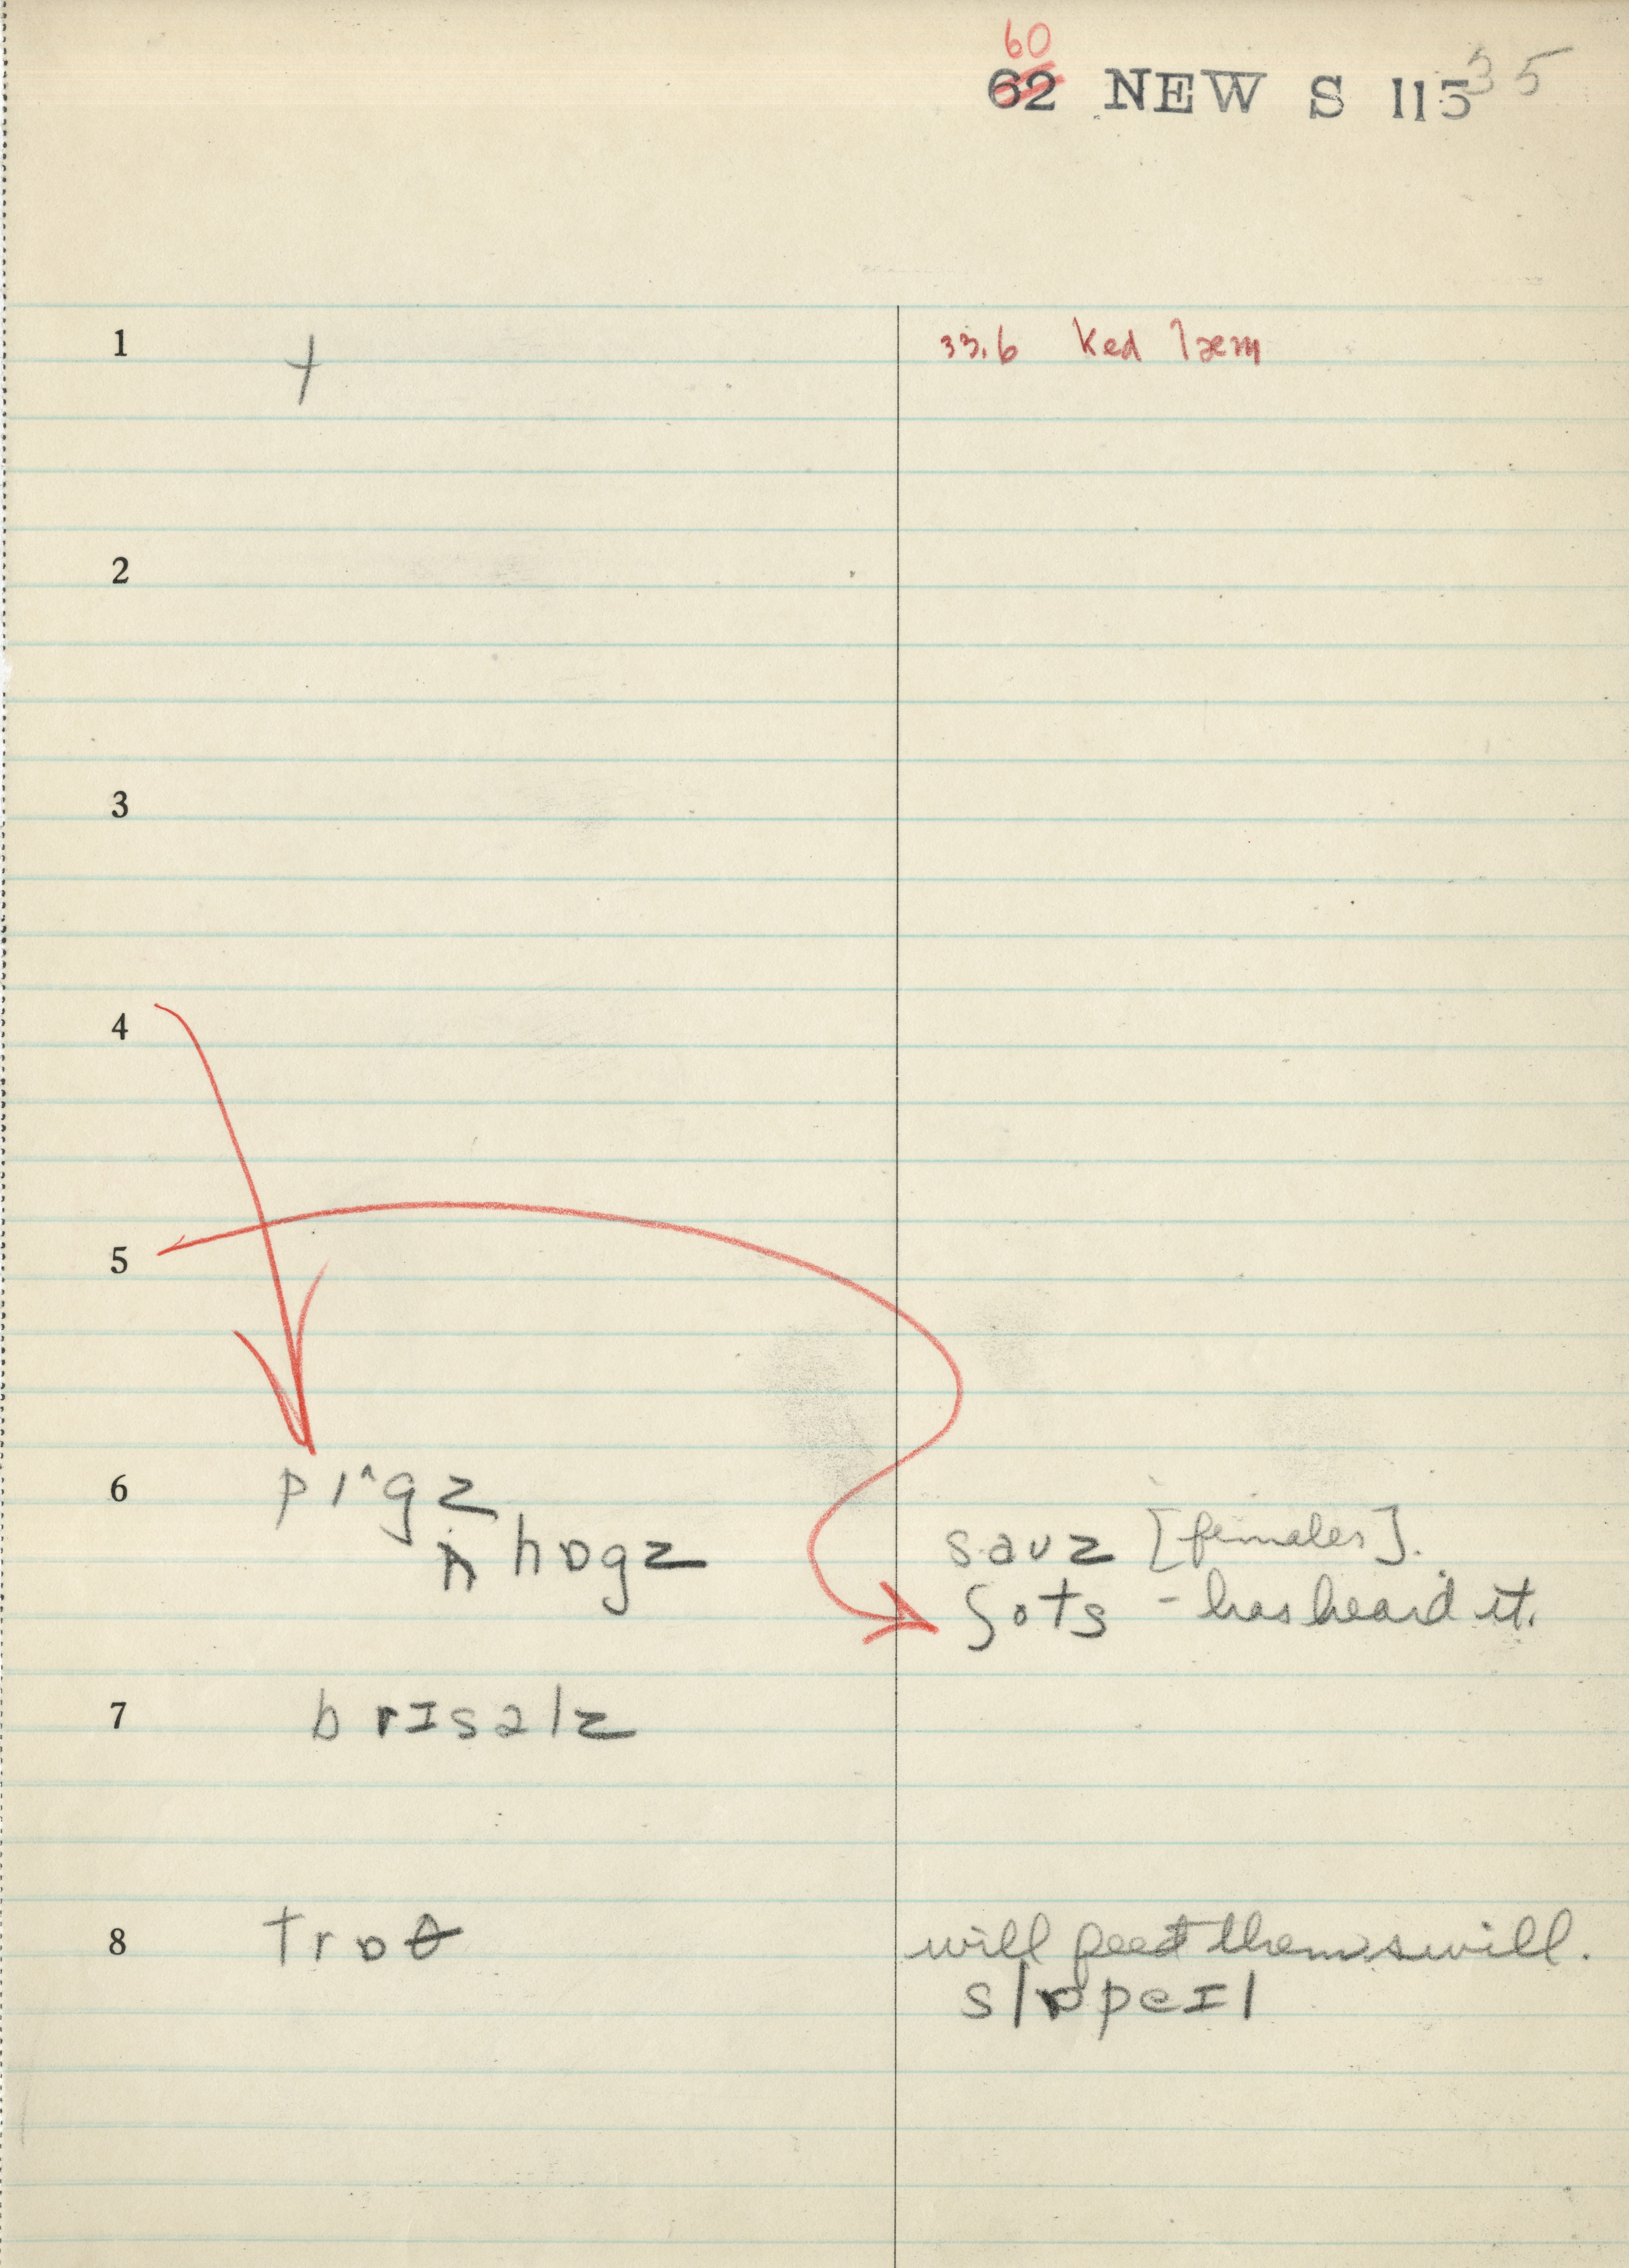 60
62 NEW S 115 35
1 +
33.6 Ked læm
2
3
4
5
6 pɪ^gz
n̩ hɒgz
sauz [females].
ʃots - has heard it.
7 brɪsəlz
8 trɒθ
will feed them swill.
slɒpeɪl